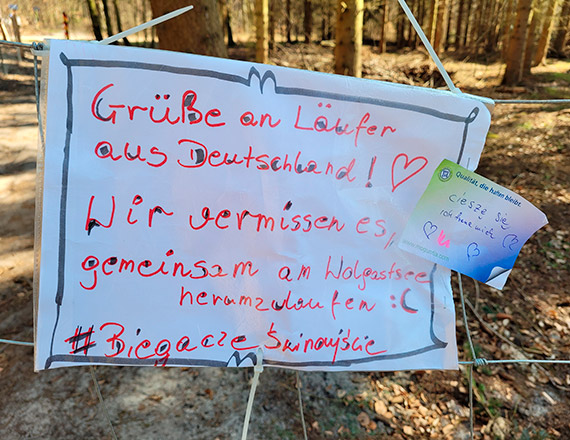 Grüße an Läufer
aus Deutschland!
Wir vermissen es,
gemeinsam am Wolgastsee
herumzulaufen :(
#Biegacze Świnoujście
Qualität, die haften bleibt.
cieszę się
ich freue mich